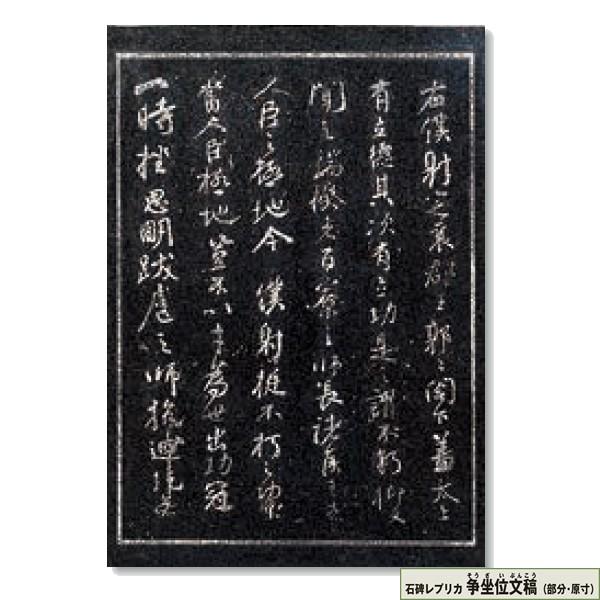 右僕射定襄郡王郭公閣下蓋太上
有立德其次有立功是之謂不朽抑又
聞之端揆者百寮之師長諸侯王者
人臣之極地今僕射挺不朽之功業
當人臣極地豈不以才為世出功冠
一時挫思明跋扈之師抗迴紇無
そうざいぶんこう
石碑レプリカ 争坐位文稿（部分・原寸）